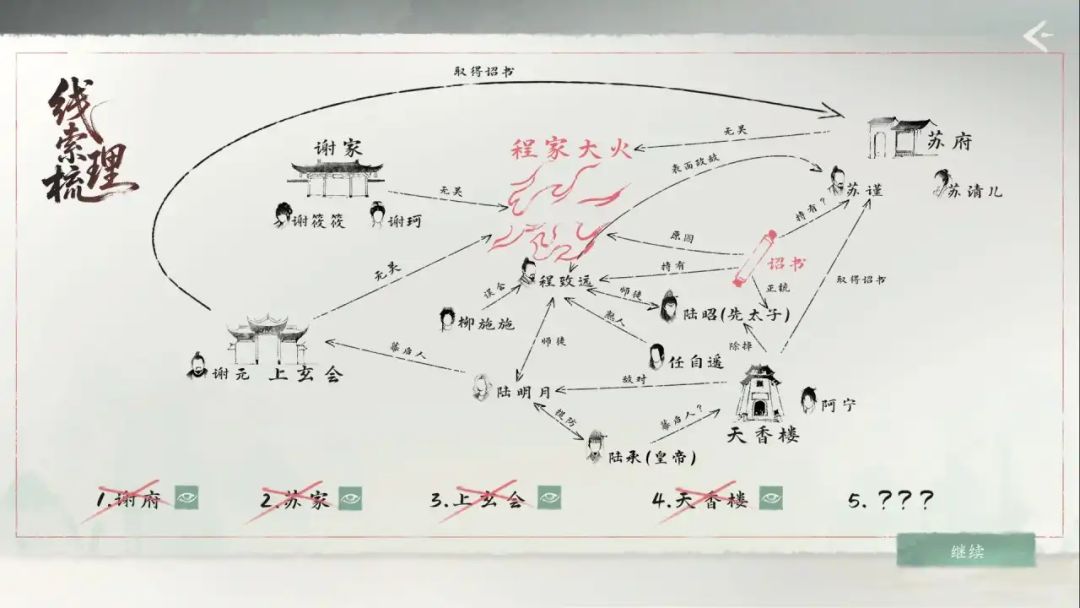 线索梳理
取得诏书
谢家
谢筱筱
谢珂
无关
程家大火
无关
表面政敌
苏府
苏谨
苏清儿
持有？
原因
持有
诏书
正统
取得诏书
无关
误会
程致远
师徒
陆昭(先太子)
柳施施
师徒
熟人
任自遥
除掉
谢元
上玄会
幕后人
陆明月
敌对
天香楼
阿宁
提防
幕后人？
陆承(皇帝)
1.谢府
2.苏家
3.上玄会
4.天香楼
5.？？？
继续